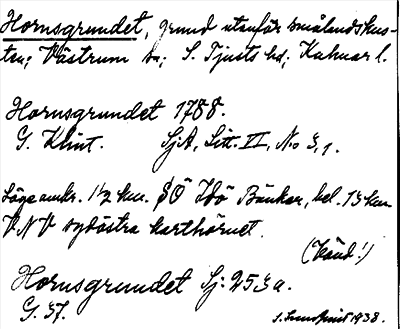 Hornsgrundet, grund utanför smålandskus-
ten; Västrum sn; S. Tjusts hd; Kalmar l.
Hornsgrundet 1788.
G. Klint. SjA, Litt. II, No 3,1.
Läge omkr. 1½ km. SÖ Idö Bänkar, bel. 13 km
VNV sydöstra karthörnet.
(Känd!)
Hornsgrundet Sj: 253a.
G. 37.
1938.